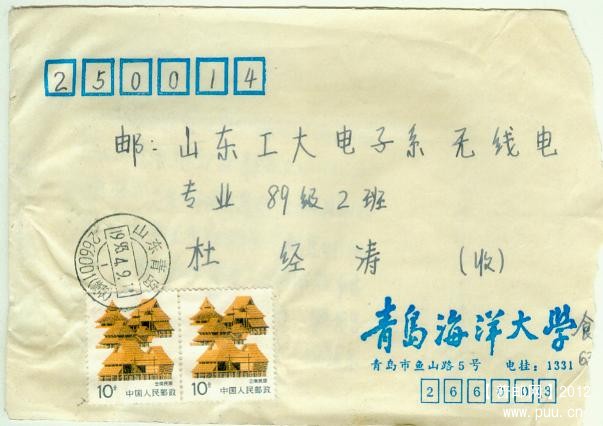 250014
邮:山东工大电子系无线电
专业89级2班
杜经涛(收)
山东青岛
266001
云南民居
10分
中国人民邮政
云南民居
10分
中国人民邮政
青岛海洋大学
食
青岛市鱼山路5号 电挂:1331
2012
www.puu.cn